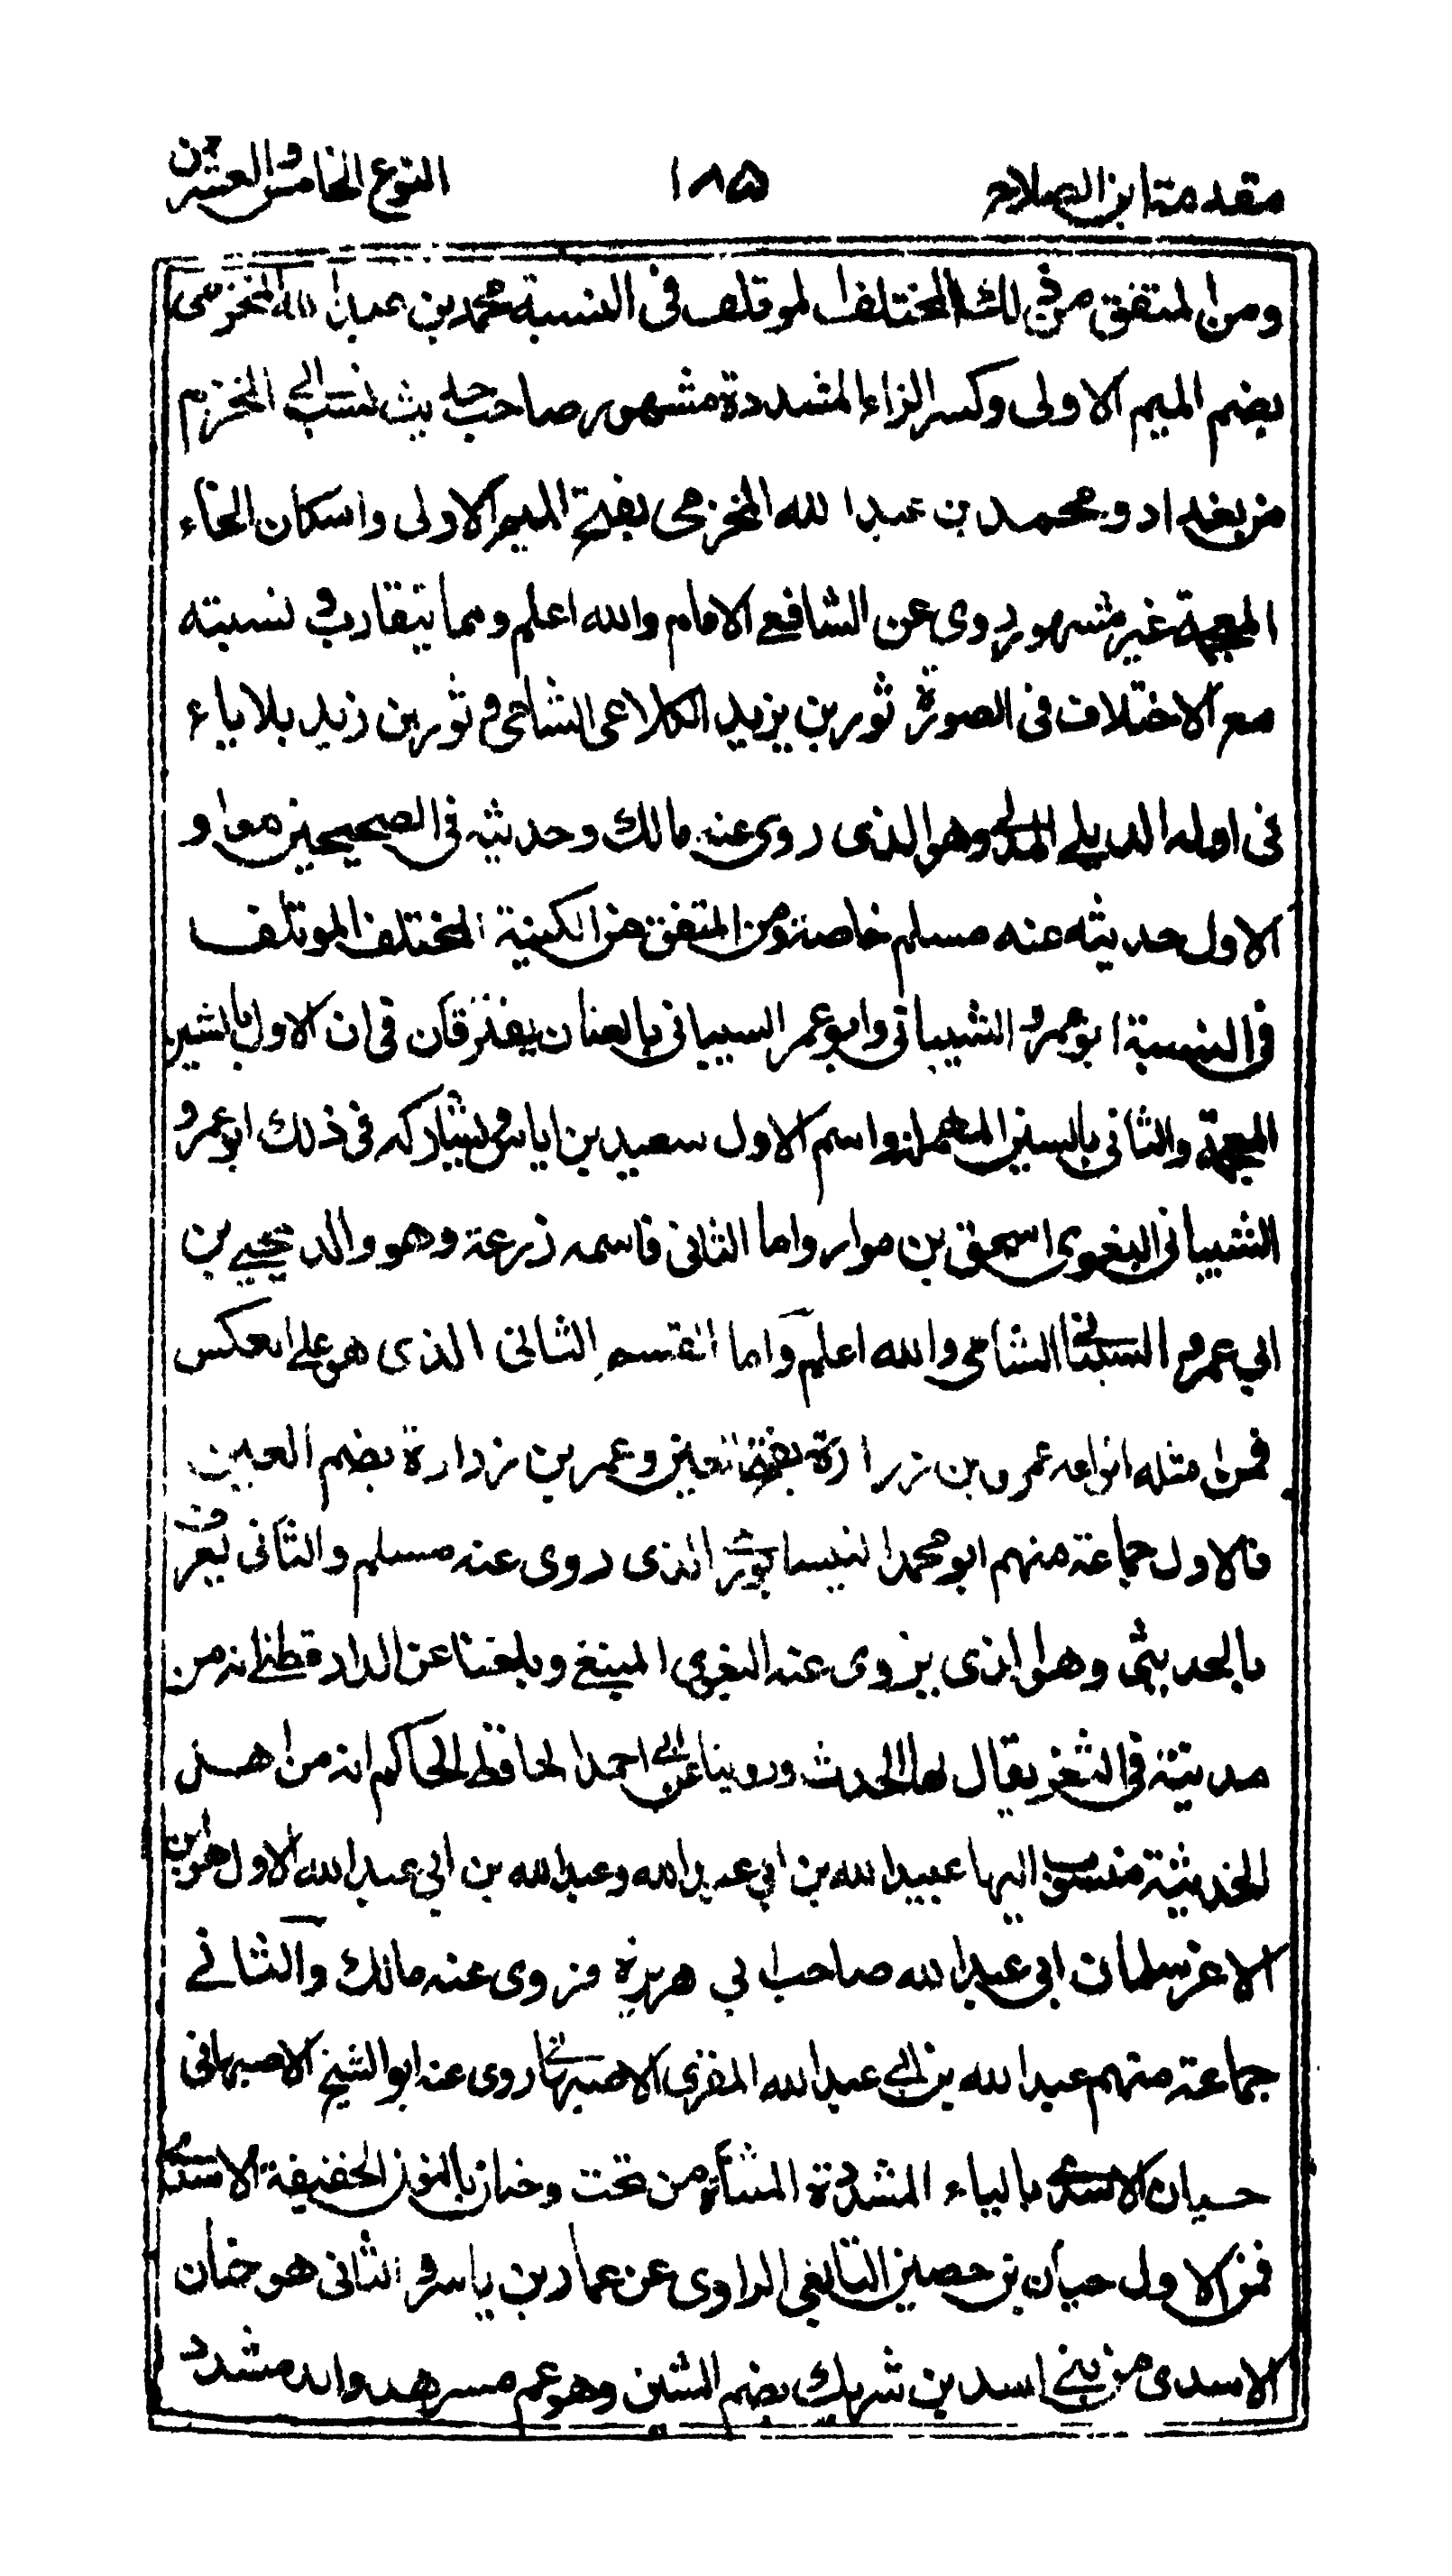 مقدمة ابن الصلاح ١٨٥ النوع الخامس والعشرون
ومن المتفق من ذلك المختلف الموتلف فى النسبة محمد بن عبد الله المخرمى
بضم الميم الاولى وكسر الراء المشددة مشهور صاحب حديث نسب الى المخرم
من بغداد و محمد بن عبد الله المخرمى بفتح الميم الاولى واسكان الخاء
المعجمة غير مشهور روى عن الشافعي الامام والله اعلم ومما يتقارب و نسبته
مع الاختلاف فى الصورة ثور بن يزيد الكلاعى الشامى و ثور بن زيد بلا ياء
فى اوله الديلي المدنى وهو الذى روى عنه مالك وحديثه فى الصحيحين معا و
الاول حديثه عند مسلم خاصة ومن المتفق من الكنية المختلف الموتلف
فى النسبة ابو عمرو الشيبانى وابو عمر السيبانى تابعيان يفترقان فى ان الاول بالشين
المعجمة والثانى بالسين المهملة واسم الاول سعيد بن اياس ويشاركه فى ذلك ابو عمرو
الشيبانى اللغوى اسحق بن مرار واما الثانى فاسمه زرعة وهو والد يحيى بن
ابي عمرو السيبانى الشامى والله اعلم واما القسم الثانى الذى هو على العكس
فمن امثلته انواعه عمرو بن زرارة بفتح العين وعمر بن زرارة بضم العين
فالاول جماعة منهم ابو محمد النيسابورى الذى روى عنه مسلم والثانى يعرف
بالحدثى وهو الذى يروى عنه البغوى المنيعي وبلغنا عن الدارقطنى انه من
مدينة فى الثغر يقال لها الحدث وروينا عن ابى احمد الحافظ الحاكم انه من اهل
الحديثة منسوب اليها عبيد الله بن ابي عبد الله وعبد الله بن ابي عبد الله الاول هو ابن
الاغر سلمان ابى عبد الله صاحب ابي هريرة روى عنه مالك والثانى
جماعة منهم عبد الله بن ابى عبد الله المقرى الاصبهانى روى عنه ابو الشيخ الاصبهانى
حيان الاسدى بالياء المشددة المثناة من تحت وحنان بالنون الخفيفة الاسدى
فمن الاول حيان بن حصين التابعي الراوى عن عمار بن ياسر و الثانى هو حنان
الاسدى من بنى اسد بن شريك بضم الشين وهو عم مسرهد والد مسدد